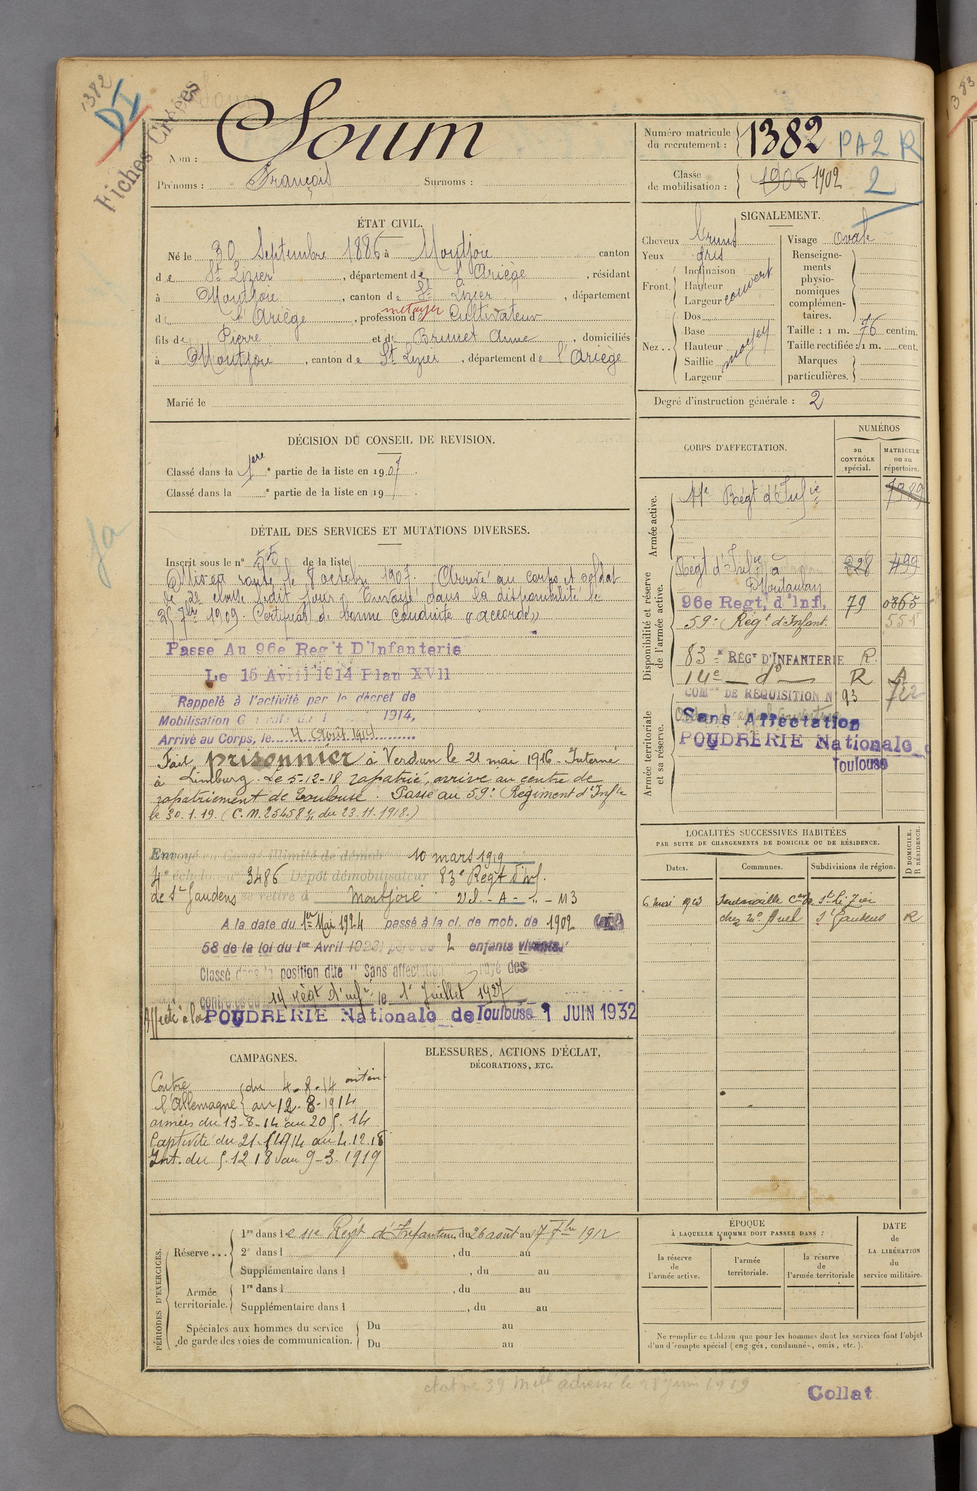 1382
DI
Fiches Créées
Nom : Soum
Prénoms : François Surnoms :
Numéro matricule du recrutement : 1382 PA2 R
Classe de mobilisation : 1906 1902 2
ÉTAT CIVIL.
Né le 30 Septembre 1886 à Montjoie canton
de St Lizier, département de l'Ariège, résidant
à Montjoie, canton de St Lizier, département
de l'Ariège, profession de métayer Cultivateur
fils de Pierre et de Brunet Anne, domiciliés
à Montjoie, canton de St Lizier, département de l'Ariège
Marié le
SIGNALEMENT.
Cheveux bruns
Yeux gris
Front. Inclinaison
Hauteur
Largeur couvert
Nez... Dos
Base
Hauteur
Saillie
Largeur moyen
Visage ovale
Renseignements physionomiques complémentaires.
Taille : 1 m. 76 centim.
Taille rectifiée : 1 m. cent.
Marques particulières.
Degré d'instruction générale : 2
DÉCISION DU CONSEIL DE REVISION.
Classé dans la 1ère partie de la liste en 1907.
Classé dans la e partie de la liste en 19
DÉTAIL DES SERVICES ET MUTATIONS DIVERSES.
Inscrit sous le n° 55 de la liste
Mis en route le 8 octobre 1907. Arrivé au corps et soldat
de 2e classe ledit jour. Envoyé dans la disponibilité le
25 7bre 1909. Certificat de bonne conduite « accordé »
Passe Au 96e Reg't D'Infanterie
Le 15 Avril 1914 Plan XVII
Rappelé à l'activité par le décret de
Mobilisation 1914,
Arrivé au Corps, le 4 Août 1914
Fait prisonnier à Verdun le 21 mai 1916 - Interné
à Limburg. Le 5-12-18 rapatrié, arrive au centre de
rapatriement de Toulouse. Passé au 59e Régiment d'Inf.ie
le 30.1.19. (C.M. 25458 du 23.11.1918.)
Envoyé en Congé illimité de démob 10 mars 1919
4e échelon n° 3486 Dépôt démobilisateur 83e Régt d'inf.
de St Gaudens se retire à Montjoie
A la date du 1er Mai 1924 passé à la cl. de mob. de 1902
58 de la loi du 1er Avril 1923) père de 2 enfants vivants.
Classé dans la position dite "Sans affectation rayé des
contrôles du 14 Régt d'inf.ie le 1r Juillet 1927
Affecté à la POUDRERIE Nationale de Toulouse 1 JUIN 1932
CORPS D'AFFECTATION.
NUMÉROS
au CONTRÔLE spécial.
MATRICULE ou au répertoire.
Armée active.
Régt d'Infie
Disponibilité et réserve de l'armée active.
Régt d'Infie à Montauban 228 499
96e Regt, d'Inf, 79 0865
59e Régt d'Infant. 551
83e RÉGt D'INFANTERIE R.
14e — do — R A
COMon DE RÉQUISITION N 93 722
Armée territoriale et sa réserve.
Sans Affectation
POUDRERIE Nationale
Toulouse
LOCALITÉS SUCCESSIVES HABITÉES
PAR SUITE DE CHANGEMENTS DE DOMICILE OU DE RÉSIDENCE.
Dates. Communes. Subdivisions de région. D DOMICILE. R RÉSIDENCE.
6 mai 1913
St Gaudens R
CAMPAGNES.
Contre l'Allemagne du 4-8-14
au 12-8-1914
armées du 13-8-14 au 20 5. 14
Captivité du 21-5-1914 au 4.12.18
Int. du 5.12 18 au 9-3-1919
BLESSURES, ACTIONS D'ÉCLAT,
DÉCORATIONS, ETC.
PÉRIODES D'EXERCICES.
Réserve... 1re dans le 11e Régt d'Infanterie, du 26 août au 17 7bre 1912
2e dans l , du au
Supplémentaire dans l , du au
Armée territoriale. 1re dans l , du au
Supplémentaire dans l , du au
Spéciales aux hommes du service de garde des voies de communication. Du au
Du au
ÉPOQUE
À LAQUELLE L'HOMME DOIT PASSER DANS :
la réserve de l'armée active.
l'armée territoriale.
la réserve de l'armée territoriale
DATE DE LA LIBÉRATION du service militaire.
Ne remplir ce tableau que pour les hommes dont les services font l'objet
d'un décompte spécial (engagés, condamnés, omis, etc.).
Collat